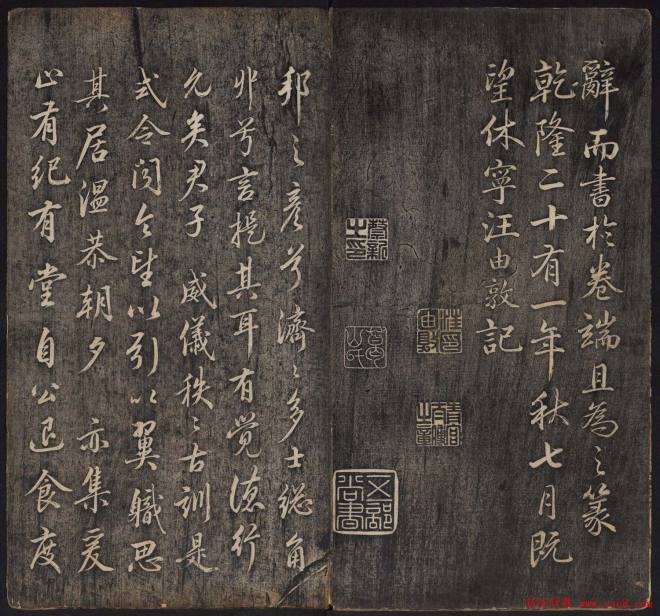 辭而書於卷端且為之篆
乾隆二十有一年秋七月既
望休寧汪由敦記
蔡新之印
工部尚書
邦之彥兮濟〻多士緫角
丱兮言提其耳有覺德行
允矣君子威儀秩〻古訓是
式令聞令望以引以翼職思
其居溫恭朝夕亦集爰
止有紀有堂自公退食度